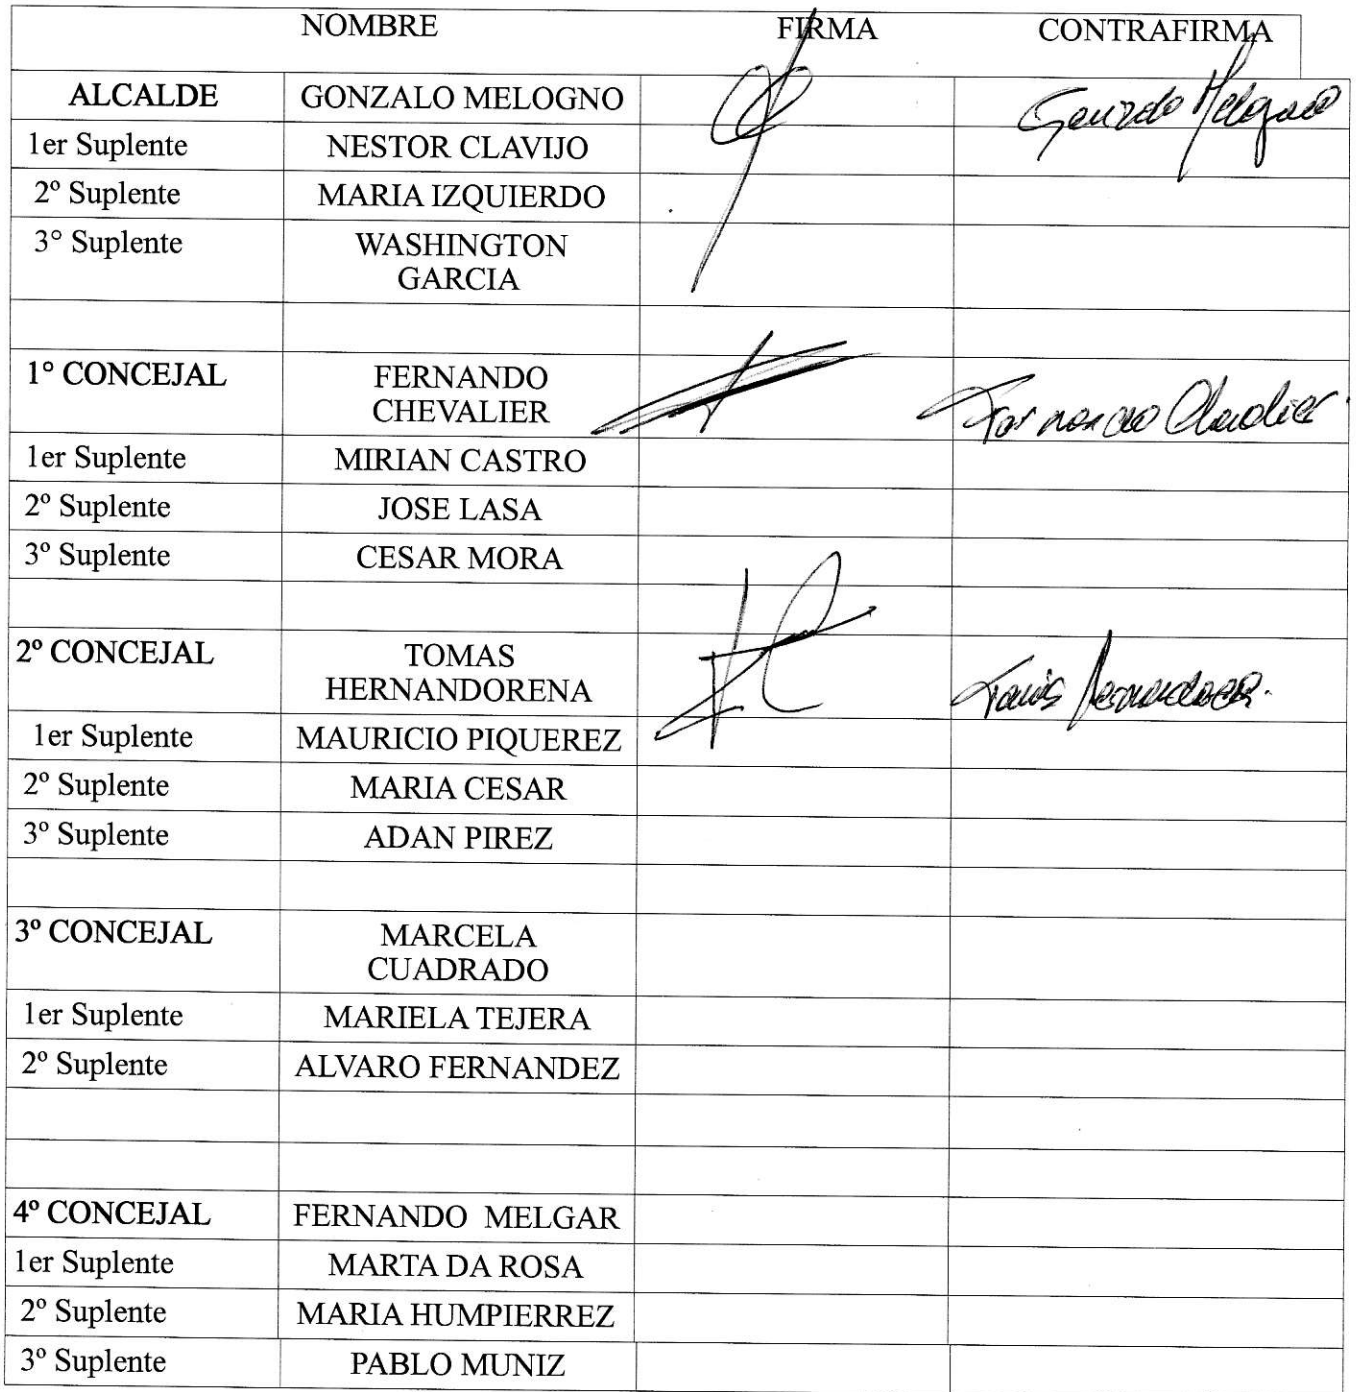 NOMBRE FIRMA CONTRAFIRMA
ALCALDE GONZALO MELOGNO Gonzalo Melogno
1er Suplente NESTOR CLAVIJO
2º Suplente MARIA IZQUIERDO
3° Suplente WASHINGTON
GARCIA
1° CONCEJAL FERNANDO
CHEVALIER Fernando Chevalier
1er Suplente MIRIAN CASTRO
2º Suplente JOSE LASA
3º Suplente CESAR MORA
2º CONCEJAL TOMAS
HERNANDORENA Tomás
1er Suplente MAURICIO PIQUEREZ
2º Suplente MARIA CESAR
3º Suplente ADAN PIREZ
3º CONCEJAL MARCELA
CUADRADO
1er Suplente MARIELA TEJERA
2º Suplente ALVARO FERNANDEZ
4º CONCEJAL FERNANDO MELGAR
1er Suplente MARTA DA ROSA
2º Suplente MARIA HUMPIERREZ
3º Suplente PABLO MUNIZ